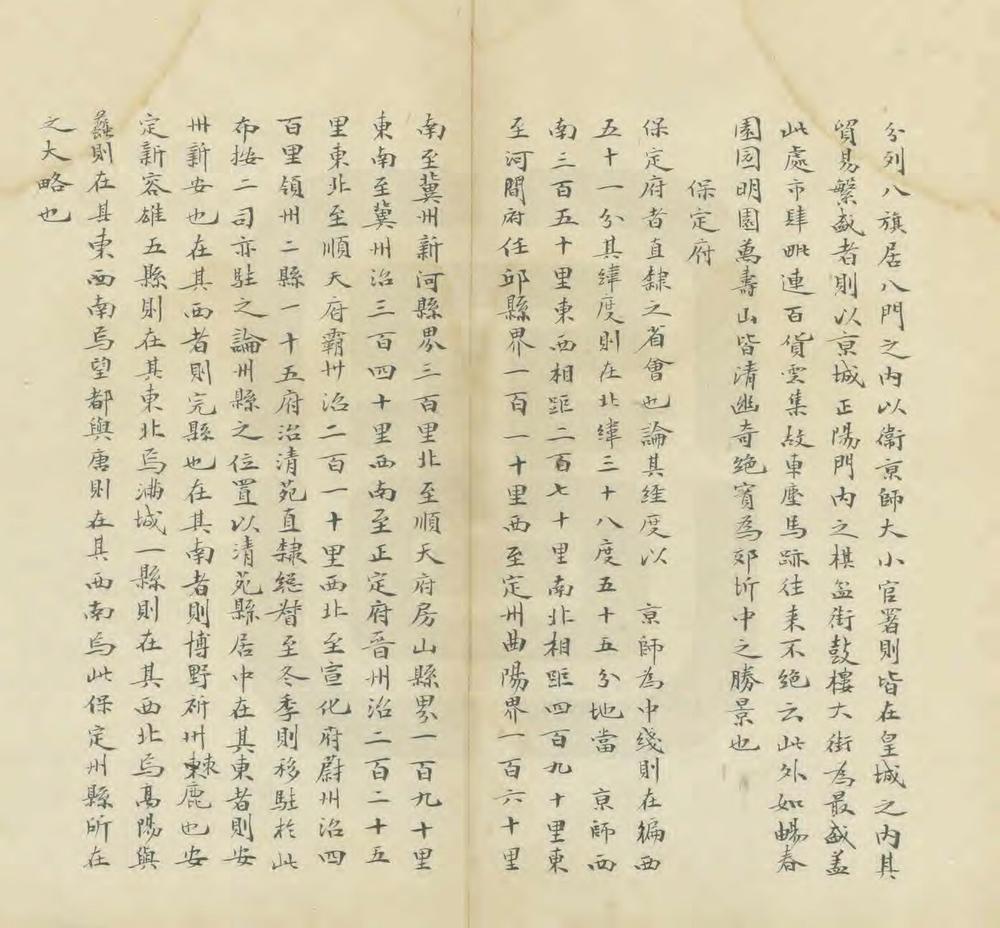 分列八旗居八門之内以衛京師大小官署則皆在皇城之内其
貿易繁盛者則以京城正陽門内之棋盆街鼓樓大街為最盛盖
此處市肆毗連百貨雲集故車塵馬跡往来不絶云此外如暢春
園圓明園萬壽山皆清幽奇絶實為郊圻中之勝景也
保定府
保定府者直隸之省會也論其經度以　京師為中綫則在徧西
五十一分其緯度則在北緯三十八度五十五分地當　京師西
南三百五十里東西相距二百七十里南北相距四百九十里東
至河間府任邱縣界一百一十里西至定州曲陽界一百六十里
南至冀州新河縣界三百里北至順天府房山縣界一百九十里
東南至冀州治三百四十里西南至正定府晋州治二百二十五
里東北至順天府霸州治二百一十里西北至宣化府蔚州治四
百里領州二縣一十五府治清苑直隸總督至冬季則移駐於此
布按二司亦駐之論州縣之位置以清苑縣居中在其東者則安
州新安也在其西者則完縣也在其南者則博野祈州束鹿也安
定新容雄五縣則在其東北焉滿城一縣則在其西北焉高陽與
蠡則在其東西南焉望都與唐則在其西南焉此保定州縣所在
之大略也